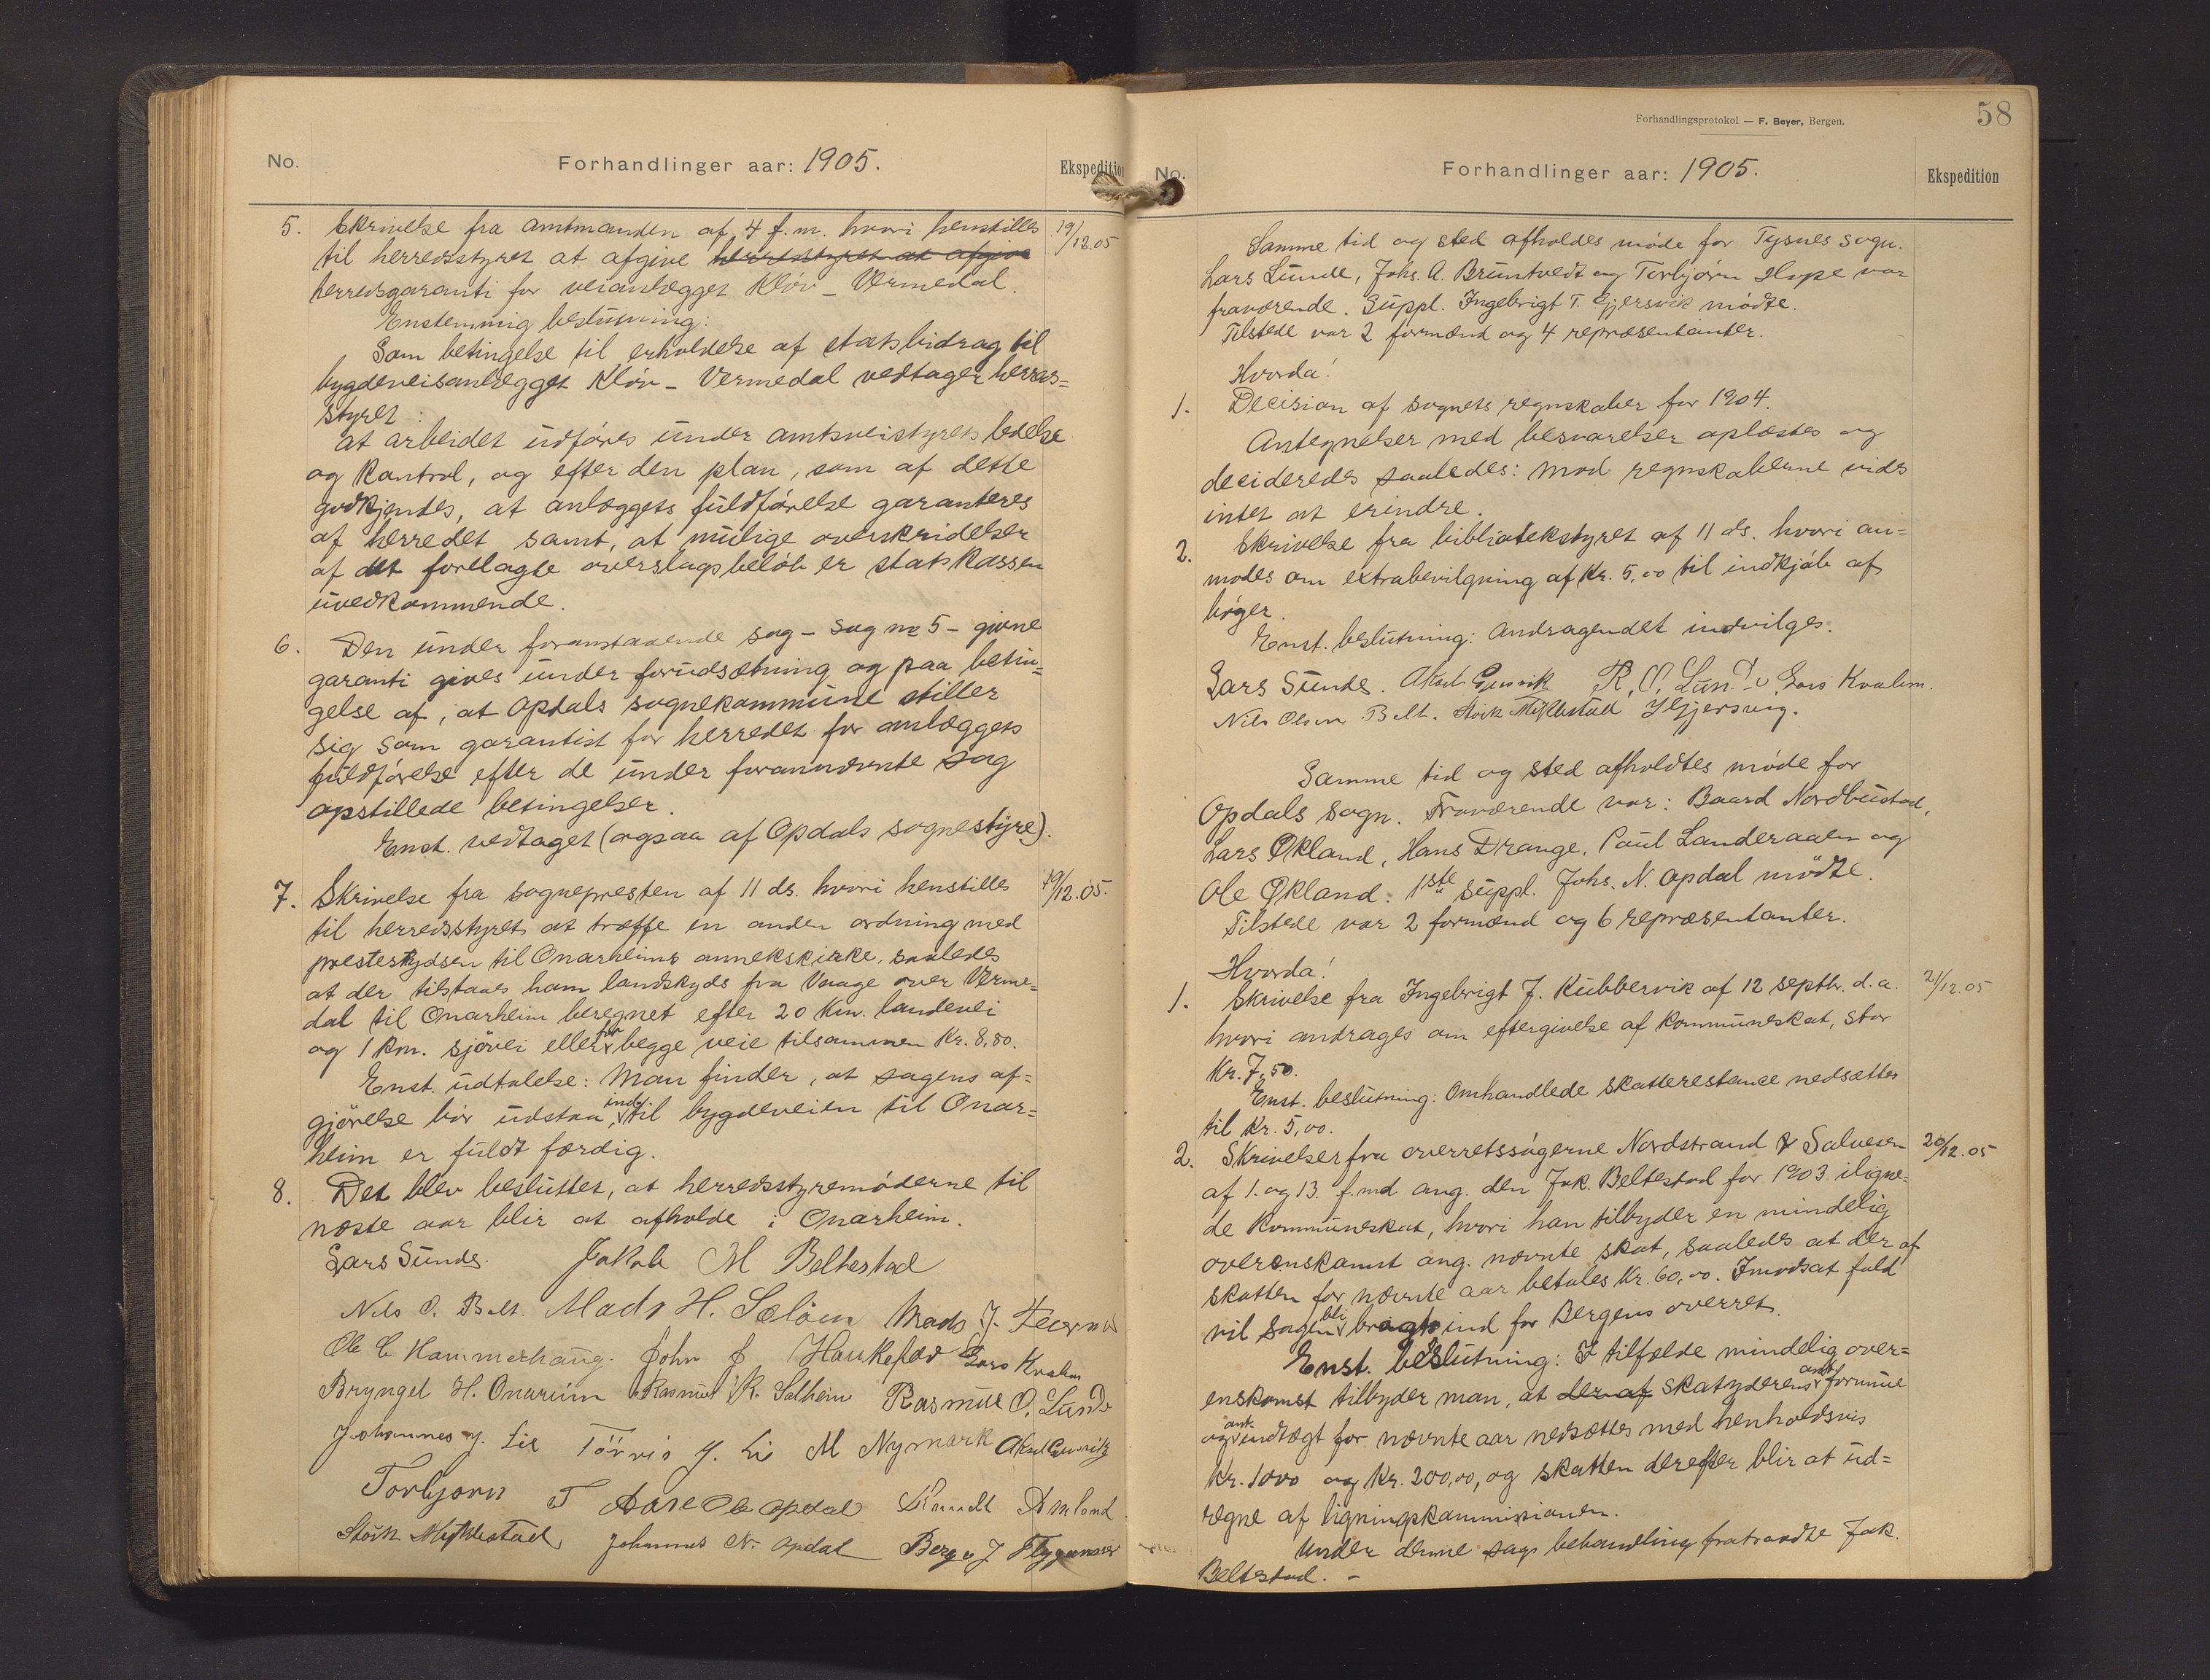 No.
Forhandlinger aar: 1905.
Ekspedition
5. Skrivelse fra amtmanden af 4 f.m. hvori henstilles
19/12.05
til herredsstyret at afgive herredsstyret at afgive
herredsgaranti for veianlægget Kløv - Vermedal.
Enstemmig beslutning:
Som betingelse til erholdelse af statsbidrag til
bygdeveisanlægget Kløv - Vermedal vedtager herres=
styret:
at arbeidet udføres under amtsveistyrets ledelse
og kontrol, og efter den plan, som af dette
godkjendes, at anlæggets fuldførelse garanteres
af herredet samt, at mulige overskridelser
af det forelagte overslagsbeløb er statskassen
uvedkommende.
6. Den under foranstaaende sag - sag no 5 - givne
garanti gives under forudsætning og paa betin=
gelse af, at Opdals sognekommune stiller
sig som garantist for herredet for anlæggets
fuldførelse efter de under forannævnte sag
opstillede betingelser.
Enst. vedtaget (ogsaa af Opdals sognestyre).
7. Skrivelse fra sognepresten af 11 ds. hvori henstilles
19/12.05.
til herredsstyret at træffe en anden ordning med
presteskydsen til Onarheims annekskirke, saaledes
at der tilstaaes ham landskyds fra Vaage over Verme=
dal til Onarheim beregnet efter 20 km. landevei
og 1 km. sjøvei eller for begge veie tilsammen Kr. 8,80.
Enst. udtalelse: Man finder, at sagens af=
gjørelse bør udstaa, indtil bygdeveien til Onar=
heim er fuldt færdig.
8. Det blev besluttet, at herredsstyremøderne til
næste aar blir at afholde i Onarheim.
Lars Sunde. Jakob M Beltestad
Nils O. Belt. Mads H. Sælöen Mads J.
Ole C Hammerhaug. John J Haukefær Lars Kvalem
Bryngel H. Onareim Rasmus R. Solheim Rasmus O. Lunde
Johannes J. Lie Törris J. Li M Nymark Aksel Gjersvik
Torbjorn T Aase Ole Opdal Amland
Störk Myklestad Johannes N. Opdal Berge J Flygansvær
58
Forhandlingsprotokol — F. Beyer, Bergen.
No.
Forhandlinger aar: 1905.
Ekspedition
Samme tid og sted afholdes møde for Tysnes sogn.
Lars Lunde, Johs. A. Bruntvedt og Torbjørn Hope var
fraværende. Suppl. Ingebrigt T. Gjersvik mødte.
Tilstede var 2 formænd og 4 repræsentanter.
Hvorda!
1. Decision af sognets regnskaber for 1904.
Antegnelser med besvarelser oplæstes og
decideredes saaledes: mod regnskaberne vides
intet at erindre.
2. Skrivelse fra bibliotekstyret af 11 ds. hvori an=
modes om extrabevilgning af Kr. 5,00 til indkjøb af
bøger.
Enst. beslutning: Andragendet indvilges.
Lars Sunde. Aksel Gjersvik R. O. Lunde Lars Kvalem.
Nils Olsen Belt. Störk Myklestad IGjersvig.
Samme tid og sted afholdtes møde for
Opdals sogn. Fraværende var: Baard Nordbustad,
Lars Økland, Hans Drange, Paul Landeraalen og
Ole Økland. 1ste suppl. Johs. N. Opdal mødte.
Tilstede var 2 formænd og 6 repræsentanter.
Hvorda!
1. Skrivelse fra Ingebrigt J. Kubbervik af 12 septbr. d.a.
21/12.05
hvori andrages om eftergivelse af kommuneskat, stor
Kr. 7,50.
Enst. beslutning: Omhandlede skatterestance nedsættes
til Kr. 5,00.
2. Skrivelser fra overretssagførerne Nordstrand & Salvesen
20/12.05
af 1. og 13. f.md ang. den Jak. Beltestad for 1903 iligne=
de kommuneskat, hvori han tilbyder en mindelig
overenskomst ang. nævnte skat, saaledes at der af
skatten for nævnte aar betales Kr. 60,00. Imodsat fald
vil sagen bli bragt ind for Bergens overret.
Enst. beslutning: I tilfælde mindelig over=
enskomst tilbyder man, at der af skatyderens ant. formue
og ant. indtægt for nævnte aar nedsættes med henholdsvis
Kr. 1000 og Kr. 200,00, og skatten derefter blir at ud=
regne af ligningskommissionen.
Under denne sags behandling fratraadte Jak.
Beltestad. -